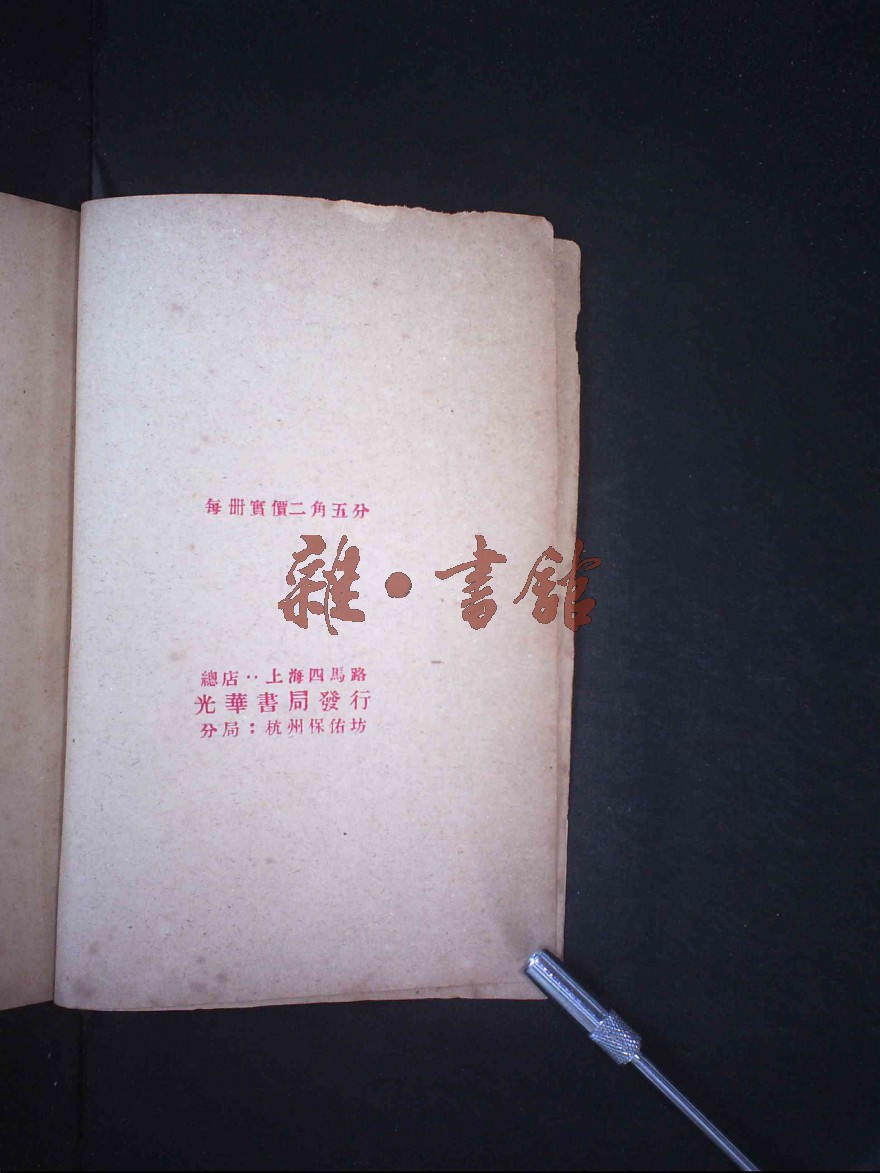 每冊實價二角五分
雜·書館
總店··上海四馬路
光華書局發行
分局:杭州保佑坊